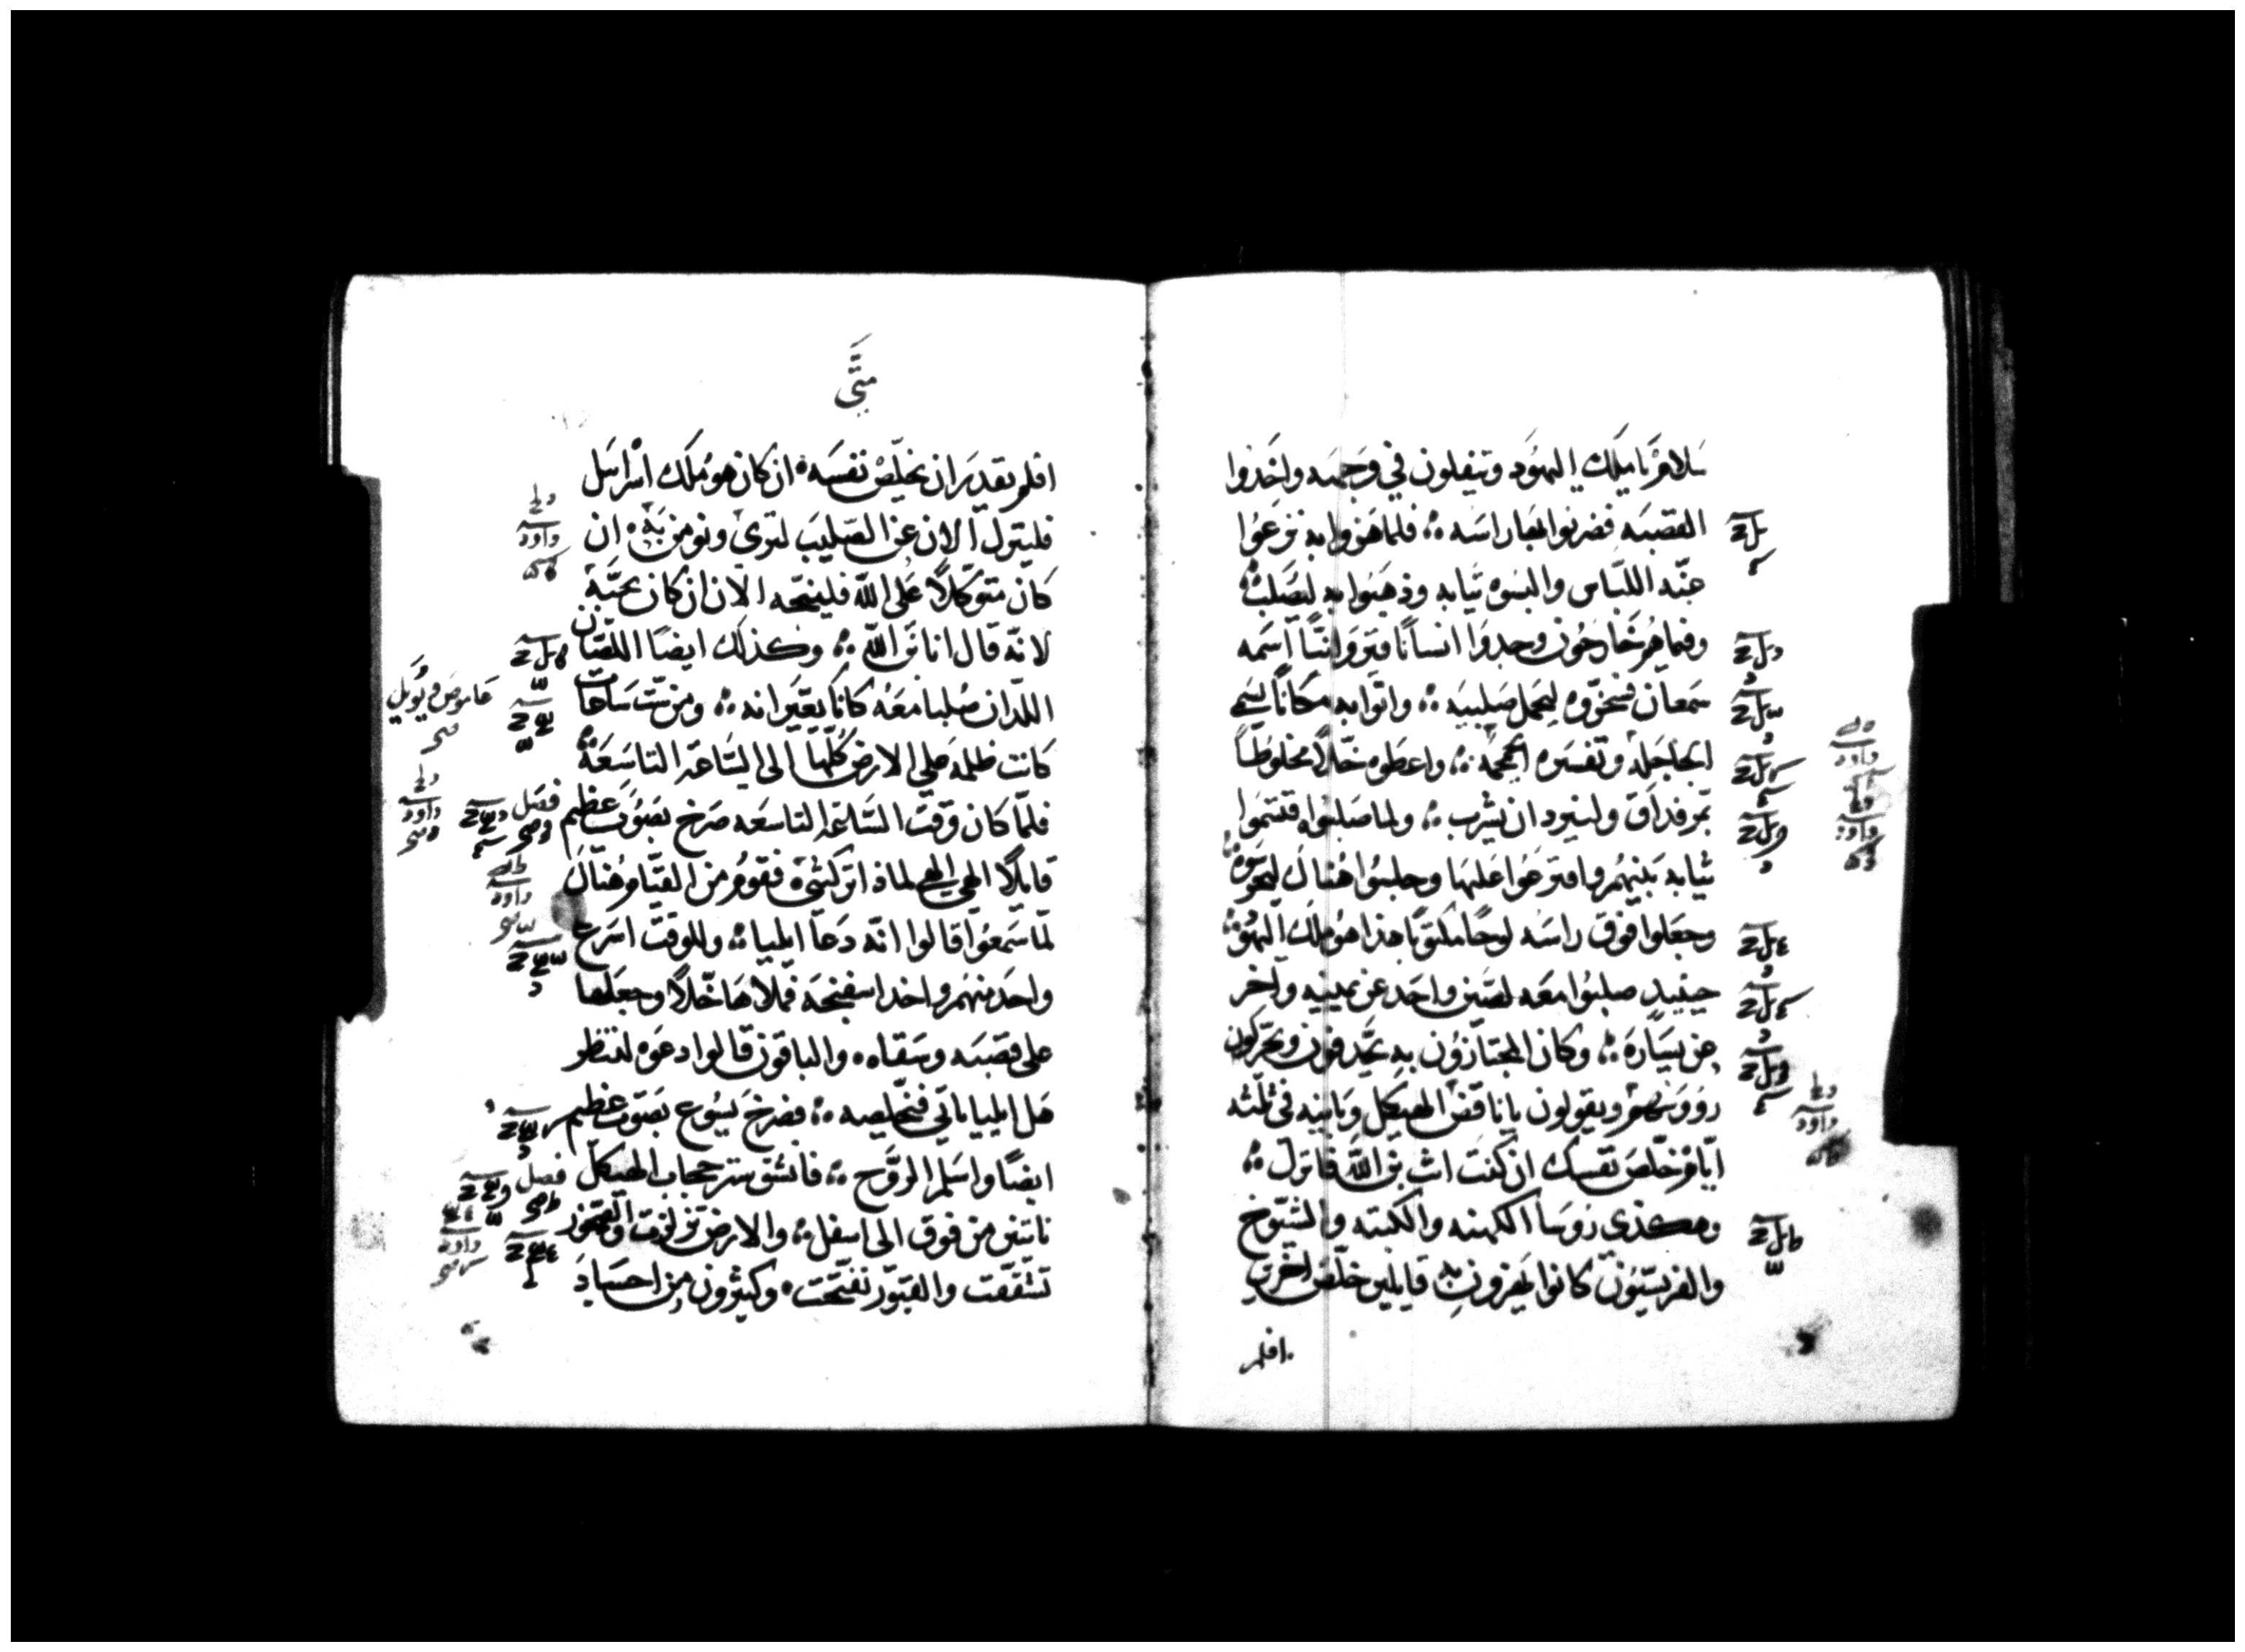 سلام يا ملك اليهود ويتفلون في وجهه واخدوا
القصبه فضربوا بها راسه فلما هزوا به نزعوا
عنه اللباس والبسوه ثيابه وذهبوا به ليصلب
وفيما هم خارجون وجدوا انسانا اسمه
سمعان فسخروه ليحمل صليبه واتوا به مكانا يسمى
الجاجله وتفسيره الجمجمه واعطوه خلا مخلوطا
بمر فداق ولم يرد ان يشرب ولما صلبوه قتسموا
ثيابه بينهم واقترعوا عليها وجلسوا هناك ليحرسوه
وجعلوا فوق راسه لوحا مكتوبا هذا هو ملك اليهود
حينيد صلبوا معه لصين واحد عن يمينه واخر
عن يساره وكان المجتازون به يجدفون ويحركون
رووسهم ويقولون يا ناقض الهيكل وبانيه في ثلثه
ايام خلص نفسك ان كنت انت بن الله فانزل
وهكذى روسا الكهنه والكتبه والشيوخ
والفريسيون كانوا يهزون به قايلين خلص اخرين
افلم
متى
افلم يقدر ان يخلص نفسه ان كان هو ملك اسراييل
فلينزل الان عن الصليب لنرى ونومن به ان
كان متوكلا على الله فلينجه الان ان كان يحبه
لانه قال انا بن الله وكذلك ايضا اللصان
اللدان صلبا معه كانا يعيرانه ومن ست ساعات
كانت ظلمه على الارض كلها الى الساعه التاسعه
فلما كان وقت الساعه التاسعه صرخ بصوت عظيم
قايلا الهي الهي لماذا تركتني فقوم من القيام هناك
لما سمعوا قالوا انه دعا ايليا وللوقت اسرع
واحد منهم واخد اسفنجه فملاها خلا وجعلها
على قصبه وسقاه والباقون قالوا دعوه لننظر
هل ايليا ياتي فيخلصه فصرخ يسوع بصوت عظيم
ايضا واسلم الروح فانشق ستر حجاب الهيكل
ناتنين من فوق الى اسفل والارض تزلزلت والصخور
تشققت والقبور تفتحت وكثيرون من اجساد
داود
داود
داود
داود
عاموص ويويل
داود
فصل
داود
فصل
داود